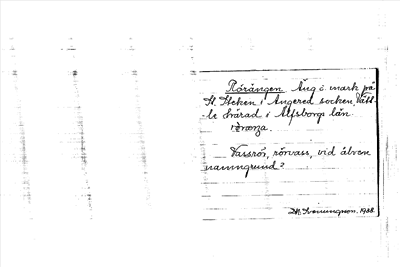 Rörängen Äng i mark på
St. Steken i Angered socken, Vätt-
le härad i Älfsborgs län.
Vassrör, rörvass, vid älven
namngrund?
Svenungsson. 1938.